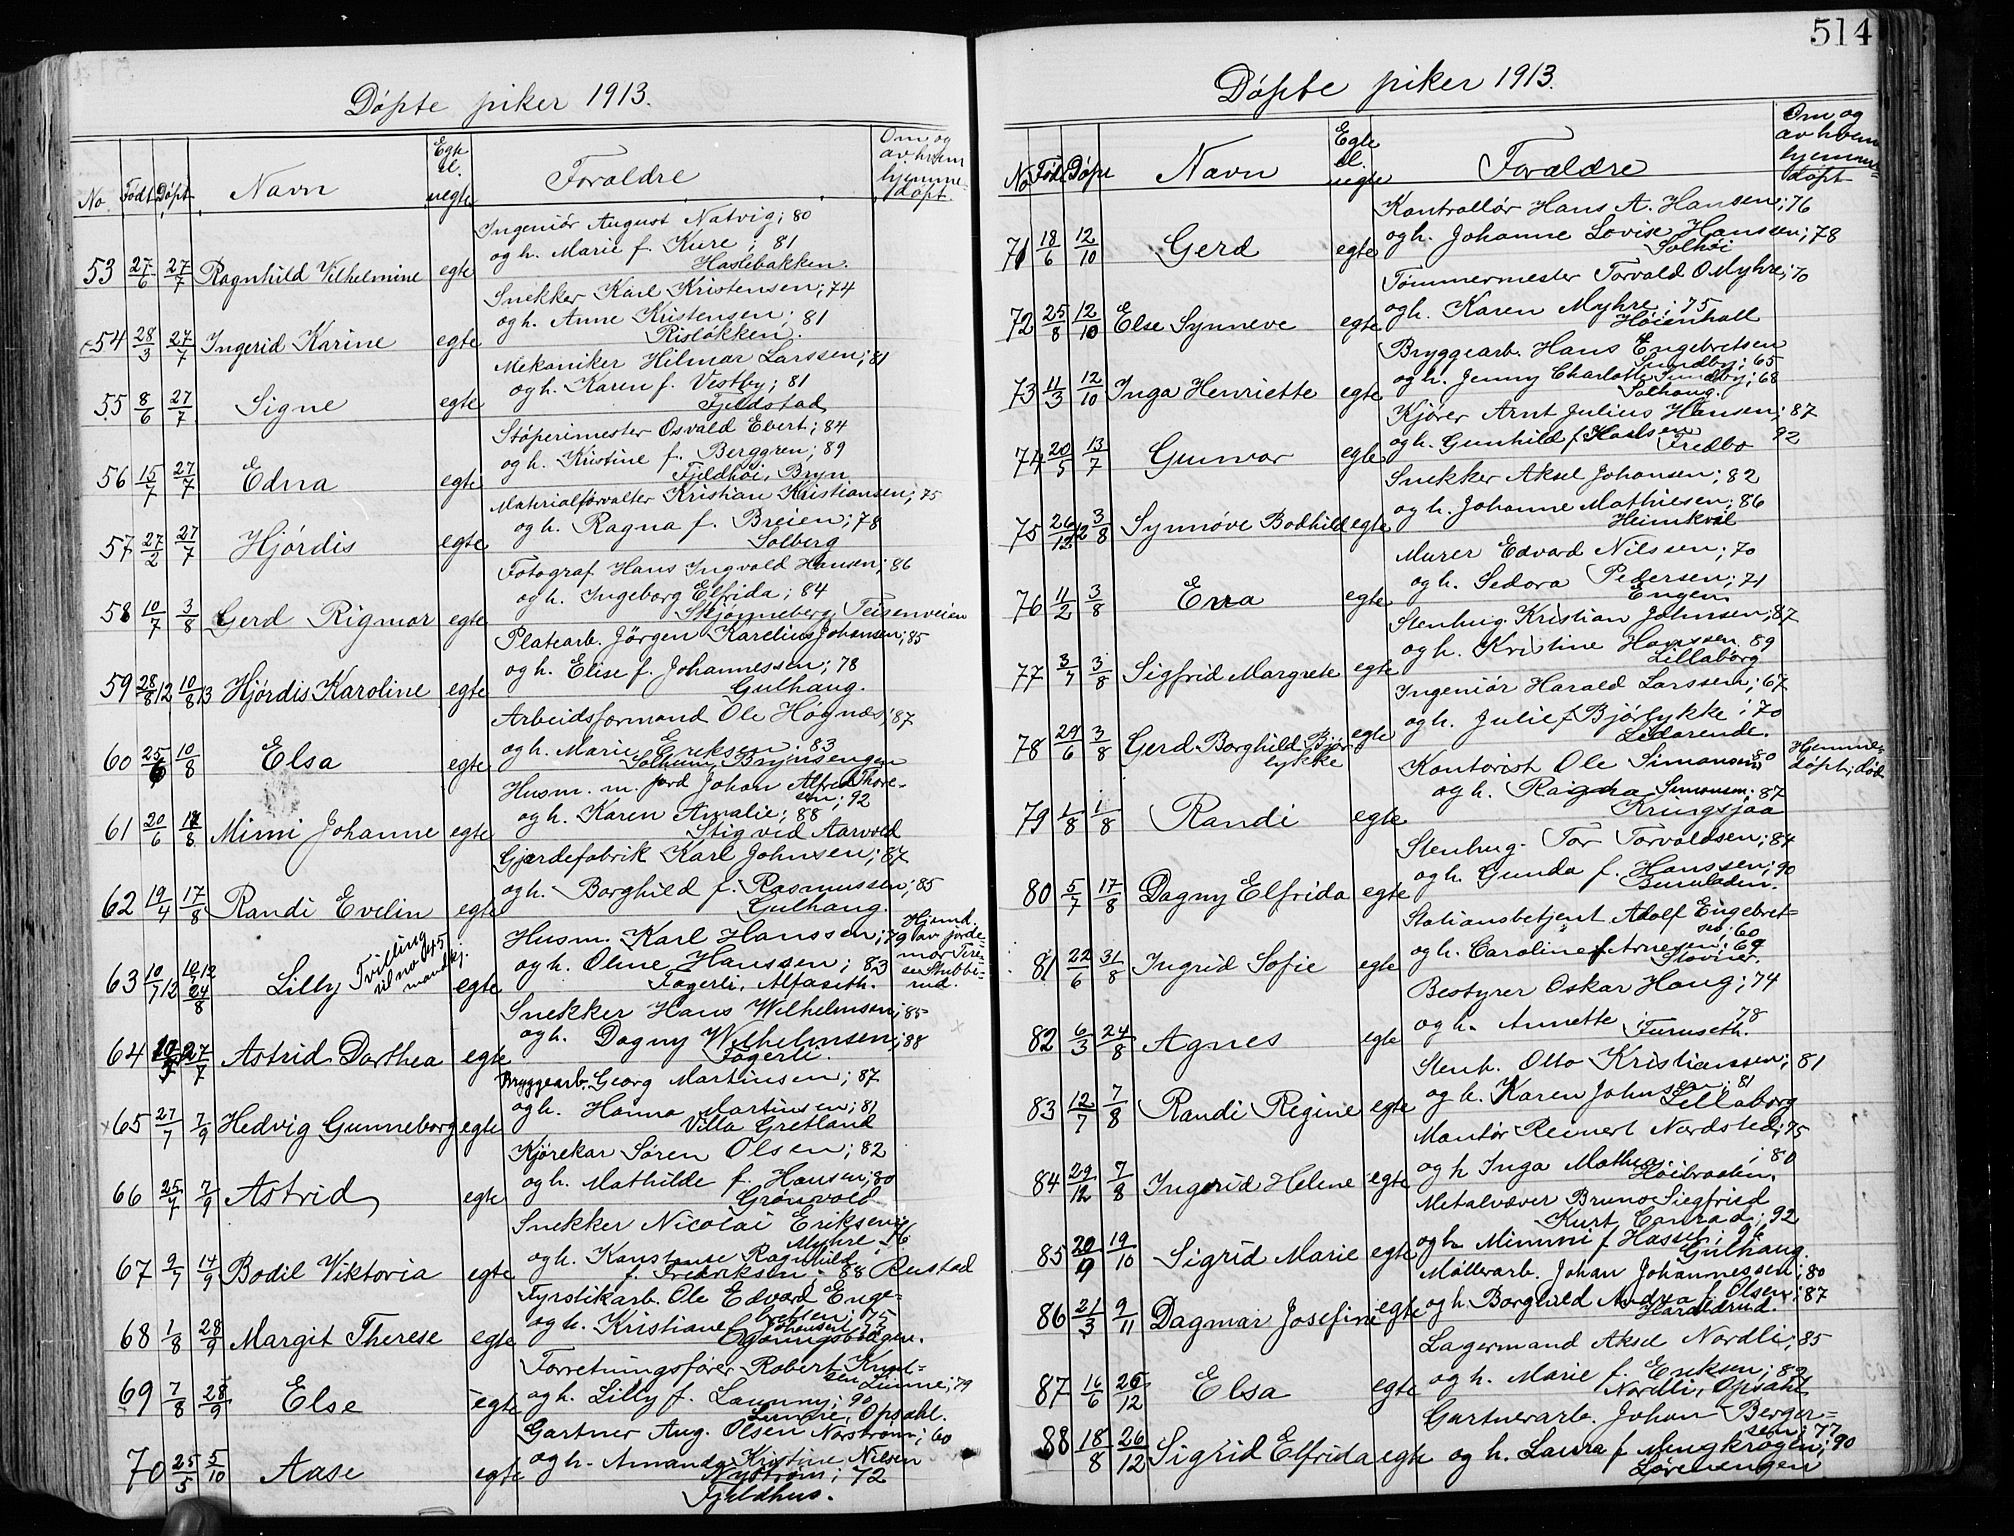 514
Døpte piker 1913.
No. Født Døpt Navn Egte el. uegte Foraldre Om og av hvem hjemme-døpt.
53 27/6 27/7 Ragnhild Vilhelmine egte Ingeniør August Natvig; 80
og h. Marie f. Kure; 81
Haslebakken.
54 28/3 27/7 Ingerid Karine egte Snekker Karl Kristensen; 74
og h. Anne Kristensen; 81
Risløkken.
55 8/6 27/7 Signe egte Mekaniker Hilmar Larssen; 81
og h. Karen f. Vestby; 81
Fjeldstad
56 15/7 27/7 Edna egte Støperimester Osvald Evert; 84
og h. Kristine f. Berggren; 89
Fjeldhøi, Bryn
57 27/2 27/7 Hjørdis egte Materialforvalter Kristian Kristiansen; 75
og h. Ragna f. Breien; 78
Solberg
58 10/7 3/8 Gerd Rigmor egte Fotograf Hans Ingvald Hansen; 86
og h. Ingeborg Elfrida; 84
Skjønneberg Teisenveien
59 28/8 12 10/8 13 Hjørdis Karoline egte Platearb. Jørgen Karelius Johansen; 85
og h. Elise f. Johannessen; 78
Gulhaug.
60 25/6 10/8 Elsa egte Arbeidsformand Ole Høgnæs; 87
og h. Marie Eriksen; 83
Solheim, Brynsengen
61 20/6 17/8 Mimi Johanne egte Husm. m. jord Johan Alfred Thore-
sen; 92
og h. Karen Amalie; 88
Stig ved Aarvold
62 19/4 17/8 Randi Evelin egte Gjærdefabrik Karl Johnsen; 87
og h. Borghild f. Rasmussen; 85
Gulhaug.
63 10/7 12 10/12 24/8 Lilly Tvilling til no 45 mandkj. egte Husm. Karl Hanssen; 79
og h. Oline Hanssen; 83
Fagerli, Alfaseth.
Hjemd. av jorde-mor Tere-se Stubbe-rud.
64 27/7 Astrid Dorthea egte Snekker Hans Wilhelmsen; 85
og h. Dagny Wilhelmsen; 88
Fagerli.
65 27/7 7/9 Hedvig Gunneborg egte Bryggearb. Georg Martinsen; 87
og h. Hanna Martinsen; 81
Villa Gretland
66 25/7 7/9 Astrid egte Kjørekar Søren Olsen; 82
og h. Mathilde f. Hansen; 80
Grønvold
67 9/7 14/9 Bodil Viktoria egte Snekker Nicolai Eriksen
Myhre; 76
og h. Konstanse Ragnhild
f. Fredriksen; 88 Rustad
68 1/8 28/9 Margit Therese egte Fyrstikarb. Ole Edvard Enge-
bretsen; 75
og h. Kristiane Johansen; 75
69 7/8 28/9 Else egte Forretningsfører Robert Knud-
sen Linne; 79
og h. Lilly f. Launny; 90
Linne, Opsahl.
70 25/5 5/10 Aase egte Gartner Aug. Olsen Norstrøm; 60
og h. Amanda Kristine Nilsen
Nystrøm; 72
Fjeldhus.
Døpte piker 1913.
No Født Døpt Navn Egte el. uegte Forældre Om og av hvem hjemme-døpt
71 18/6 12/10 Gerd egte Kontrollør Hans A. Hansen; 76
og h. Johanne Lovise Hanssen; 78
Solhøi
72 25/8 12/10 Else Synneve egte Tømmermester Torvald O Myhre; 70
og h. Karen Myhre; 75
Høienhall
73 11/3 12/10 Inga Henriette egte Bryggearb. Hans Engebretsen
Sundby; 65
og h. Jenny Charlotte Sundby; 68
Solhaug.
74 20/5 13/7 Gunvor egte Kjører Arnt Julius Hansen; 87
og h. Gunhild f. Karlsen 92
Fredbo
75 26/12 12 3/8 Synnøve Bodhild egte Snekker Aksel Johansen; 82
og h. Johanne Mathiesen; 86
Heimkval
76 11/2 3/8 Erna egte Murer Edvard Nilssen; 70
og h. Sedora Pedersen; 71
Engen
77 3/7 3/8 Sigfrid Margrete egte Stenhug. Kristian Johnsen; 87
og h. Kristine Hanssen 89
Lillaborg
78 29/6 3/8 Gerd Borghild Bjør-
lykke egte Ingeniør Harald Larssen; 67
og h. Julie f Bjørlykke; 70
Lidarende.
79 1/8 1/8 Randi egte Kontorist Ole Simonsen; 80
og h. Ragna Simonsen; 87
Kringsjaa
Hjemme-døpt, død
80 5/7 17/8 Dagny Elfrida egte Stenhug. Tor Torvaldsen; 84
og h. Gunda f. Hanssen; 90
81 22/6 31/8 Ingrid Sofie egte Stationsbetjent Adolf Engebret-
sen; 60
og h. Caroline f Arnesen; 69
Stovner.
82 6/3 24/8 Agnes egte Bestyrer Oskar Haug; 74
og h. Annette 78
Furuseth.
83 12/7 7/8 Randi Regine egte Stenh. Otto Kristianssen; 81
og h. Karen Johnsen; 81
Lillaborg
84 29/12 7/8 Ingerid Helene egte Montør Reinert Nordsted; 75
og h Inga Mathea; 80
Høibraaten.
85 20/9 19/10 Sigrid Marie egte Metalvæver Bruno Siegfried
Kurt Conrad; 92
og h Mimmi f Hassel; 91
Gulhaug.
86 21/3 9/11 Dagmar Josefine egte Møllerarb. Johan Johannessen; 80
og h. Borghild Andrea f. Olsen; 87
Haraldrud.
87 16/6 26/12 Elsa egte Lagermand Aksel Nordli; 85
og h. Marie f. Eriksen; 82
Nordli, Opsahl
88 18/8 26/12 Sigrid Elfrida egte Gartnerarb. Johan Berger-
sen; 77
og h. Laura f Mengkrogen; 90
Lørenengen